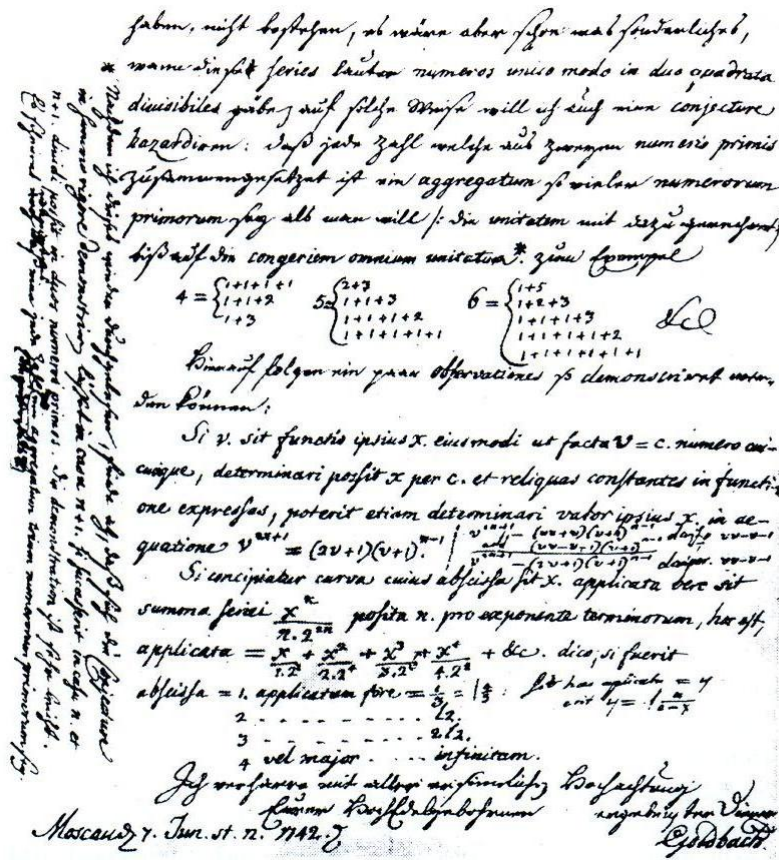 haben, nicht bestehen, es wäre aber schon was sonderliches,
wann diese series lauter numeros unico modo in duo quadrata
divisibiles gäbe auf solche Weise will ich auch eine conjecture
hazardiren: daß jede zahl welche aus zweyen numeris primis
zusammengesetzet ist ein aggregatum so vieler numerorum
primorum sey als man will /: die unitatem mit dazu gerechnet :/
biß auf die congeriem omnium unitatum*. zum Exempel
4 = { 1+1+1+1 5 = { 2+3 6 = { 1+5
1+1+2 1+1+3 1+2+3
1+3 1+1+1+2 1+1+1+3 &c
1+1+1+1+1 1+1+1+1+2
1+1+1+1+1+1
Hierauf folgen ein paar observationes so demonstriret wer-
den können:
Si v. sit functio ipsius x. eiusmodi ut facta v = c. numero cui-
cunque, determinari possit x per c. et reliquas constantes in functi-
one expressas, poterit etiam determinari valor ipsius x. in ae-
quatione v^{2n+1} = (2v+1)(v+1)^{n-1}
Si concipiatur curva cuius abscissa sit x. applicata vero sit
summa seriei x^n/(n.2^{2n}) posita n. pro exponente terminorum, hoc est,
applicata = x/(1.2^2) + x^2/(2.2^4) + x^3/(3.2^6) + x^4/(4.2^8) + &c. dico, si fuerit
abscissa = 1. applicatam fore = l 4/3
2 . . . . . . . . l2.
3 - - - - - - - 2l2.
4 vel major . . . . infinitam.
Ich verharre mit aller ersinnlichen Hochachtung
Eurer HochEdelgebohrnen ergebenster Diener
Moscau d. 7. Jun. st. n. 1742. Goldbach.
* Nachdem ich dieses wieder durchgelesen, finde ich, daß sich die conjecture
in summo rigore demonstriren läßet in casu n+1. si successerit in casu n. et
n+1. dividi possit in duos numeros primos. Die demonstration ist sehr leicht.
Es scheinet wenigstens, daß eine jede Zahl die größer ist als 2 ein aggregatum trium numerorum primorum sey.